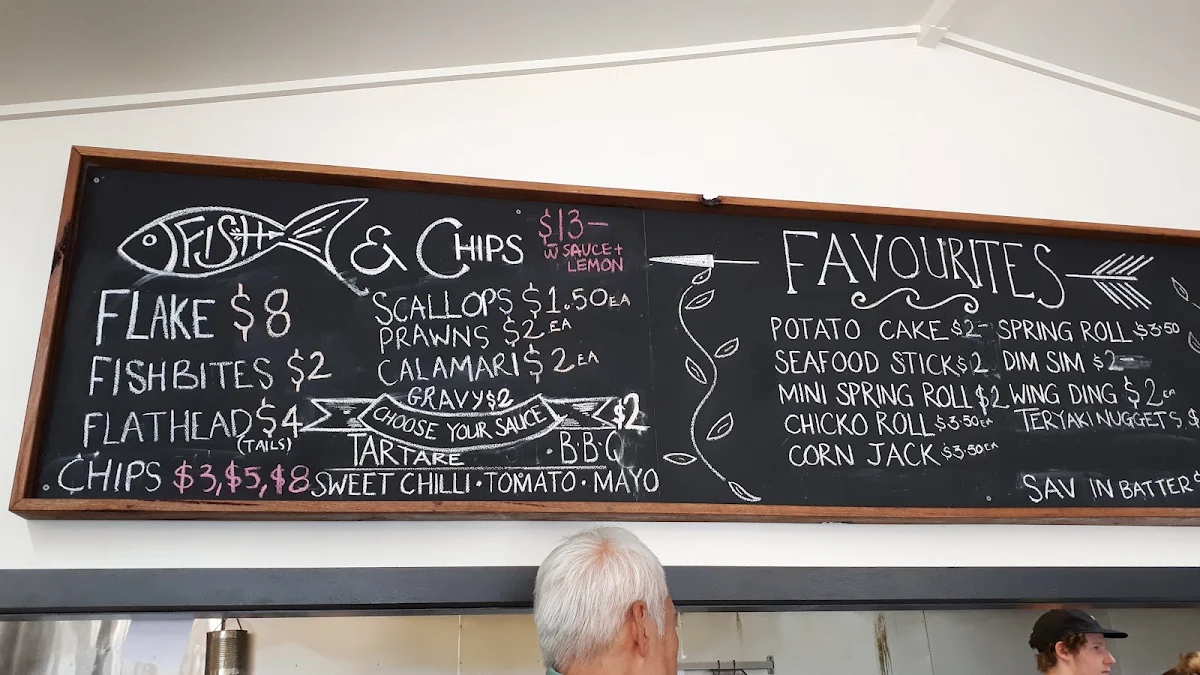 FISH & CHIPS $13—
W SAUCE +
LEMON
FLAKE $8
FISHBITES $2
FLATHEAD $4
(TAILS)
CHIPS $3,$5,$8
SCALLOPS $1.50 EA
PRAWNS $2 EA
CALAMARI $2 EA
GRAVY $2
CHOOSE YOUR SAUCE $2
TARTARE · B·B·Q
SWEET CHILLI · TOMATO · MAYO
FAVOURITES
POTATO CAKE $2-
SEAFOOD STICK $2
MINI SPRING ROLL $2
CHICKO ROLL $3.50 EA
CORN JACK $3.50 EA
SPRING ROLL $3.50
DIM SIM $2
WING DING $2 EA
TERYAKI NUGGETS
SAV IN BATTER